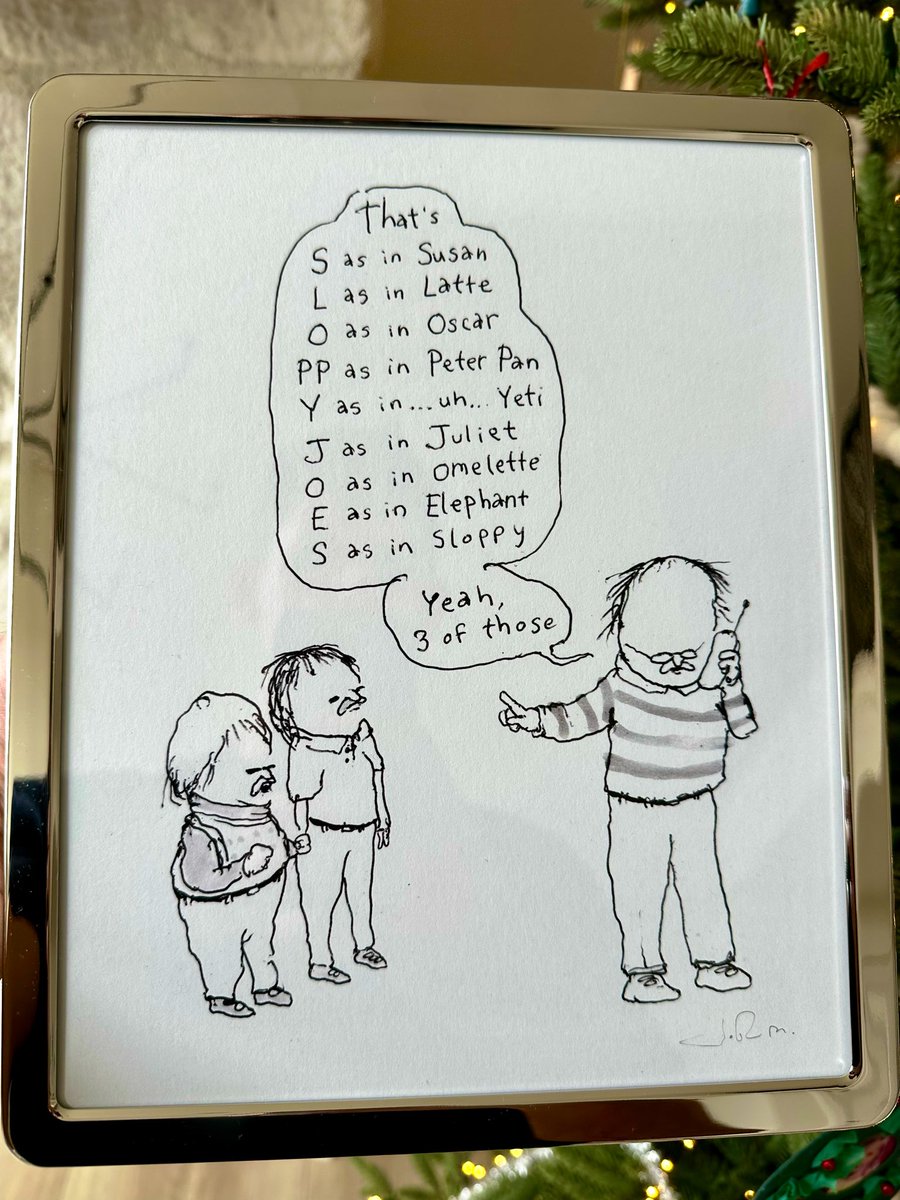 That's
S as in Susan
L as in Latte
O as in Oscar
PP as in Peter Pan
Y as in...uh... Yeti
J as in Juliet
O as in Omelette
E as in Elephant
S as in Sloppy
Yeah,
3 of those